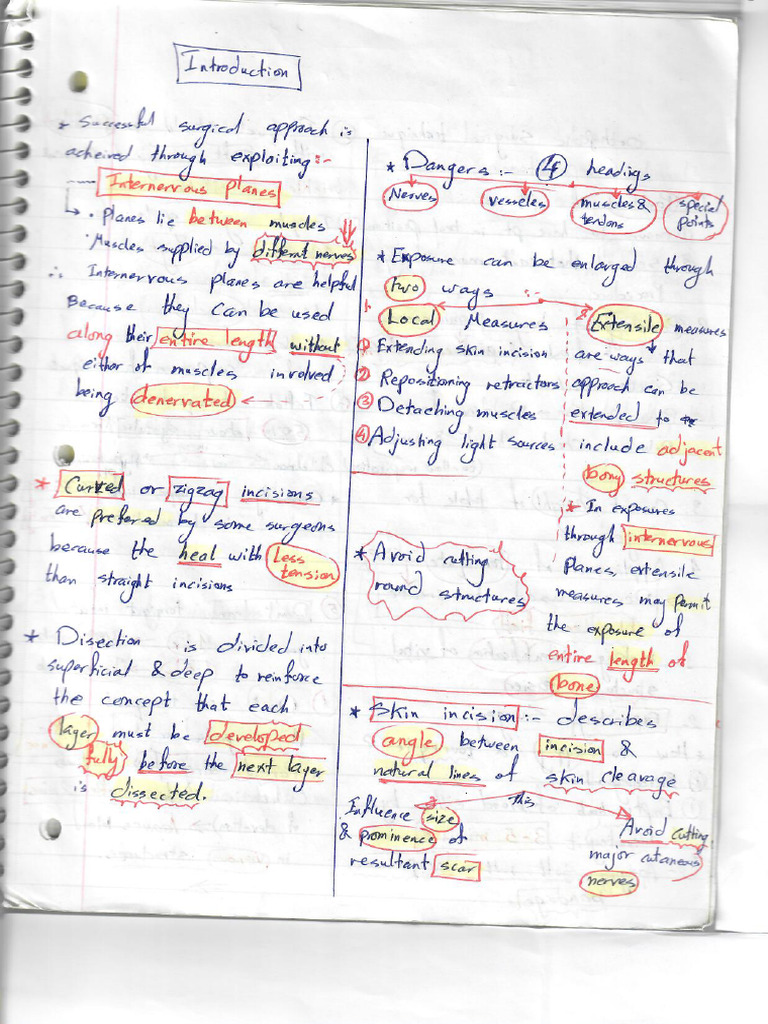 Introduction
* Successful surgical approach is
acheived through exploiting :-
Internervous planes
↳ • Planes lie between muscles
• Muscles supplied by different nerves
∴ Internervous planes are helpful
Because they can be used
along their entire length without
either of muscles involved
being denervated
* Curved or zigzag incisions
are prefered by some surgeons
because the heal with Less
tension
than straight incisions
* Disection is divided into
superficial & deep to reinforce
the concept that each
layer must be developed
fully before the next layer
is dissected.
* Dangers :- 4 headings
Nerves vesseles muscles & special
tendons points
* Exposure can be enlarged through
two ways :-
1 Local Measures
① Extending skin incision
② Repositioning retractors
③ Detaching muscles
④ Adjusting light sources
2 Extensile measures
are ways that
approach can be
extended to
include adjacent
bony structures
* In exposures
through internervous
Planes, extensile
measures may permit
the exposure of
entire length of
bone
* Avoid cutting
round structures
* Skin incision :- describes
angle between incision &
natural lines of skin cleavage
this
Influence size
& prominence of
resultant scar
Avoid cutting
major cutaneous
nerves